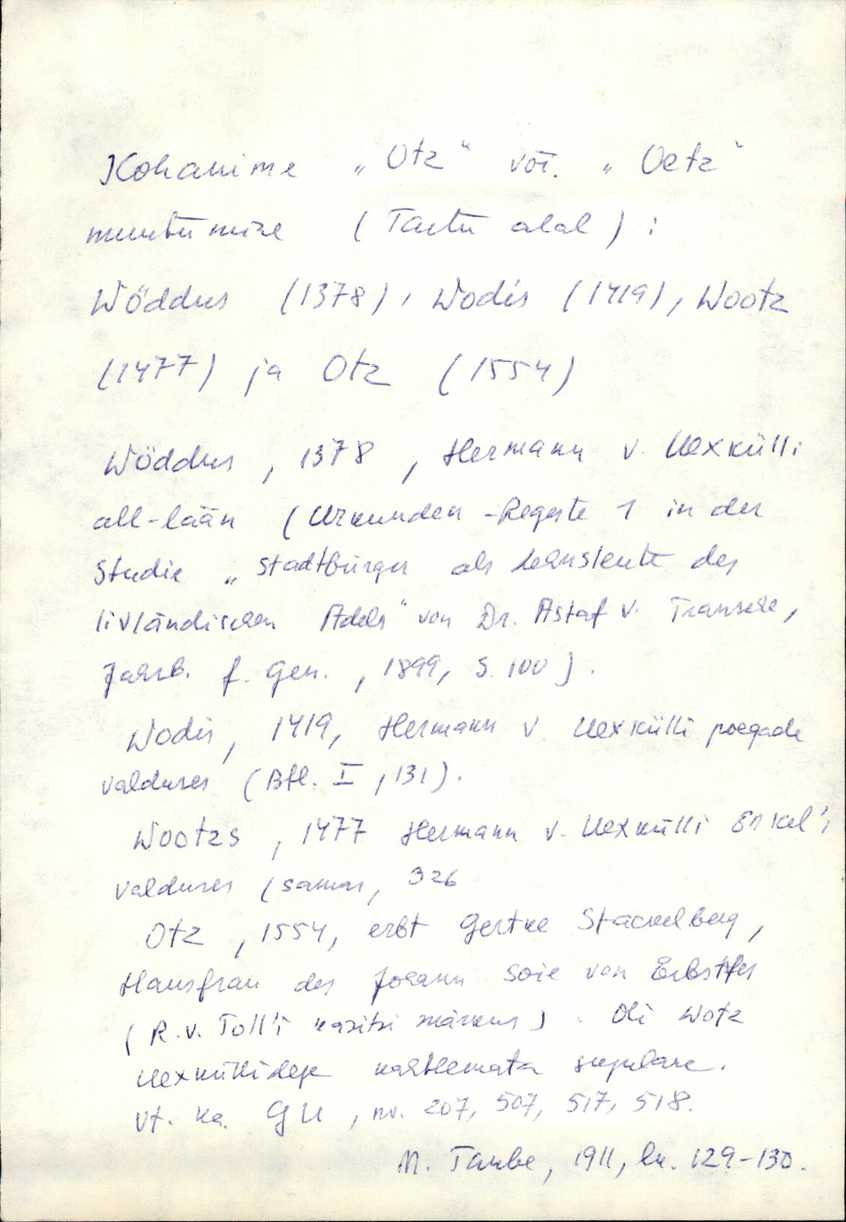 Kohanime „Otz“ või. „Oetz“
muutumine (Tartu alal):
Wöddus (1378), Wodis (1419), Wootz
(1477) ja Otz (1554)
Wöddus, 1378, Hermann v. Uexkülli
all-lään (Urkunden-Regeste 1 in der
Studie „Stadtbürger als Lehnsleute des
livländischen Adels“ von Dr. Astaf v. Transehe,
Jahrb. f. Gen., 1899, S. 100).
Wodis, 1419, Hermann v. Uexkülli poegade
valduses (Bfl. I, 131).
Wootzs, 1477 Hermann v. Uexkülli Enkel'i
valduses (samas, 326
Otz, 1554, erbt Gertke Stackelberg,
Hausfrau des Johann Soie von Erbstfer
(R. v. Toll'i käsitsi märkus). Oli Wotz
Uexküllidege kahtlemata sugulane.
Vt. ka. GU, nr. 207, 507, 517, 518.
M. Taube, 1911, lk. 129-130.